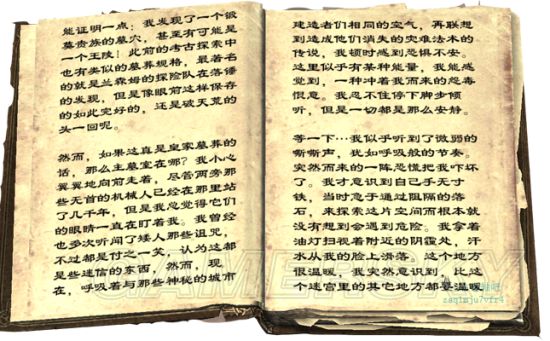 能证明一点：我发现了一个锻
莫贵族的墓穴，甚至有可能是
一个王陵！此前的考古探索中
也有类似的墓葬规格，最著名
的就是兰森姆的探险队在落锤
的发现，但是像眼前这样保存
的如此完好的，还是破天荒的
头一回呢。
然而，如果这真是皇家墓葬的
话，那么主墓室在哪？我小心
翼翼地向前走着，尽管两旁那
些无首的机械人已经在那里站
了几千年，但是我总觉得它们
的眼睛一直在盯着我。我曾经
也多次听闻了矮人那些诅咒，
不过都是付之一笑，认为这都
是些迷信的东西，然而，现
在，呼吸着与那些神秘的城市
建造者们相同的空气，再联想
到造成他们消失的灾难法术的
传说，我顿时感到恐惧不安。
这里似乎有某种能量，我能感
觉到，一种冲着我而来的怨毒
恨意，我忍不住停下脚步倾
听，但是一切都是那么安静。
等一下…我似乎听到了微弱的
嘶嘶声，犹如呼吸般的节奏。
突然而来的一阵恐慌把我吓坏
了。我才意识到自己手无寸
铁，当时急于通过阻隔的落
石，来探索这片空间而根本就
没有想到会遇到危险。我拿着
油灯扫视着附近的阴霾处，汗
水从我的脸上滑落，这个地方
很温暖，我突然意识到，比这
个迷宫里的其它地方都要温暖
GAMERSKY
zaq1mju7vfr4